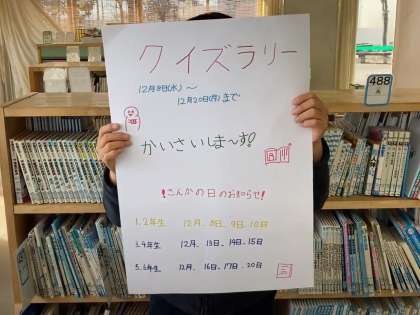 クイズラリー
12月8日(水)〜
12月20日(月)まで
かいさいしま〜す!
!さんかの日のお知らせ!
1.2年生 12月、8日、9日、10日
3.4年生 12月、13日、14日、15日
5.6年生 12月、16日、17日、20日
488